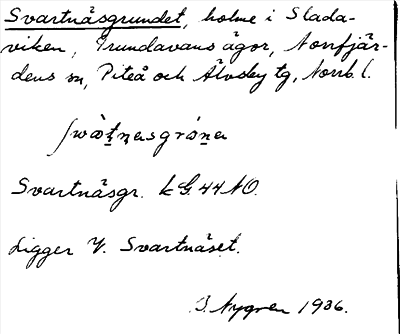 Svartnäsgrundet, holme i Slada-
viken, Trundavans ägor, Norrfjär-
dens sn, Piteå och Älvsby tg, Norrb. l.
Svartnäsgr. kG. 44 NO.
Ligger V. Svartnäset.
B. Nygren 1936.